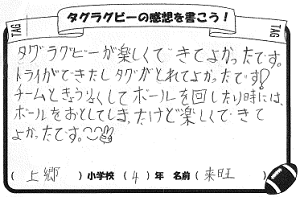 タグラグビーの感想を書こう！
TAG
TAG
タグラグビーが楽しくできてよかったです。
トライができたしタグがとれてよかったです!
チームときょうりょくしてボールを回したり時には、
ボールをおとしてしまったけど楽しくできて
よかったです。
( 上郷 ) 小学校 ( 4 ) 年 名前 ( 来旺 )